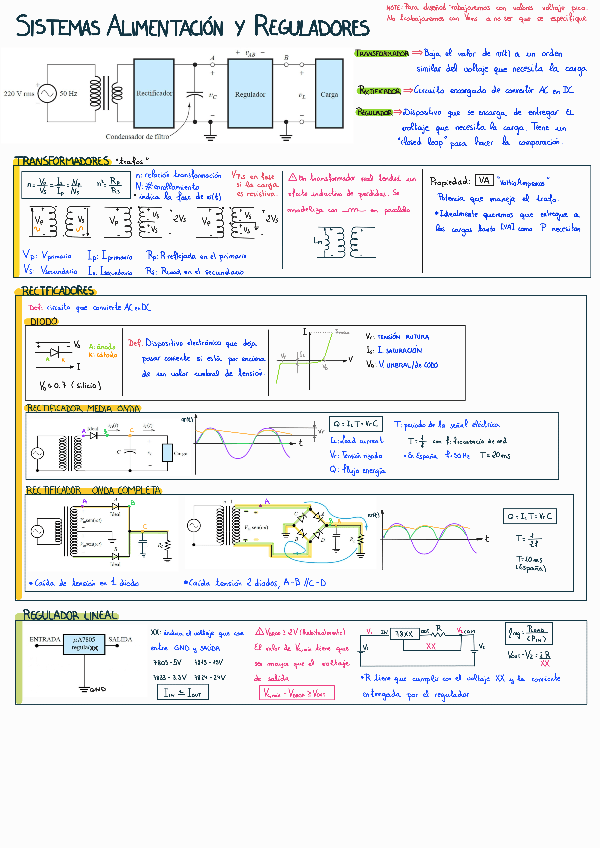 SISTEMAS ALIMENTACIÓN Y REGULADORES
NOTE: Para diseñar trabajaremos con valores voltaje pico.
No trabajaremos con Vrms a no ser que se especifique
220 V rms
50 Hz
Rectificador
Condensador de filtro
A
+ vAB −
B
Regulador
Carga
vC
vL
TRANSFORMADOR ⇒ Baja el valor de m(t) a un orden
similar del voltaje que necesita la carga
RECTIFICADOR ⇒ Circuito encargado de convertir AC en DC
REGULADOR ⇒ Dispositivo que se encarga de entregar EL
voltaje que necesita la carga. Tiene un
"closed loop" para hacer la comparación.
TRANSFORMADORES "trafos"
n: relación transformación
N: # enrollamiento
• indica la fase de
si la carga
es resistiva
Vp Vs Vp Vs Vs 2Vs Vp Vs Vs 2Vs
Vp: Vprimario Ip: Iprimario Rp: R reflejada en el primario
Vs: Vsecundario Is: Isecundario
⚠ Un transformador real tendrá un
efecto inductivo de perdidas. Se
modeliza con en paralelo
Lm
Propiedad: VA "VoltioAmperio"
Potencia que maneja el trafo.
• Idealmente queremos que entregue a
las cargas tanto [VA] como P necesitan
RECTIFICADORES
Def: circuito que convierte AC en DC
DIODO
A: ánodo
K: cátodo
V0 ≈ 0.7 (silicio)
Def: Dispositivo electrónico que deja
pasar corriente si está por encima
de un valor umbral de tensión.
I
V
Vr: TENSIÓN RUTURA
Is: I. SATURACIÓN
V0: V. UMBRAL/DE CODO
RECTIFICADOR MEDIA ONDA
Ideal
Carga
m(t)
t
Q = IL T = Vr C
IL: load current
Vr: Tensión rizado
Q: flujo energía
T: periodo de la señal eléctrica
T = 1/f con f: frecuencia de red
• En España f = 50 Hz T = 20ms
RECTIFICADOR ONDA COMPLETA
• Caída de tensión en 1 diodo
• Caída tensión 2 diodos, A-B // C-D
m(t)
t
Q = IL T = Vr C
T = 1/2f
T = 10ms
(España)
REGULADOR LINEAL
ENTRADA
µA7805
reguladXX
SALIDA
GND
XX: indica el voltaje que cae
entre GND y SALIDA
7805 - 5V 7815 - 15V
7833 - 3.3V 7824 - 24V
IIN ≈ IOUT
⚠ VDROP ≥ 2V (habitualmente)
El valor de Vc,min tiene que
ser mayor que el voltaje
de salida
Vc,min - VDROP ≥ VOUT
IN 78XX OUT R
XX
• R tiene que cumplir con el voltaje XX y la corriente
entregada por el regulador